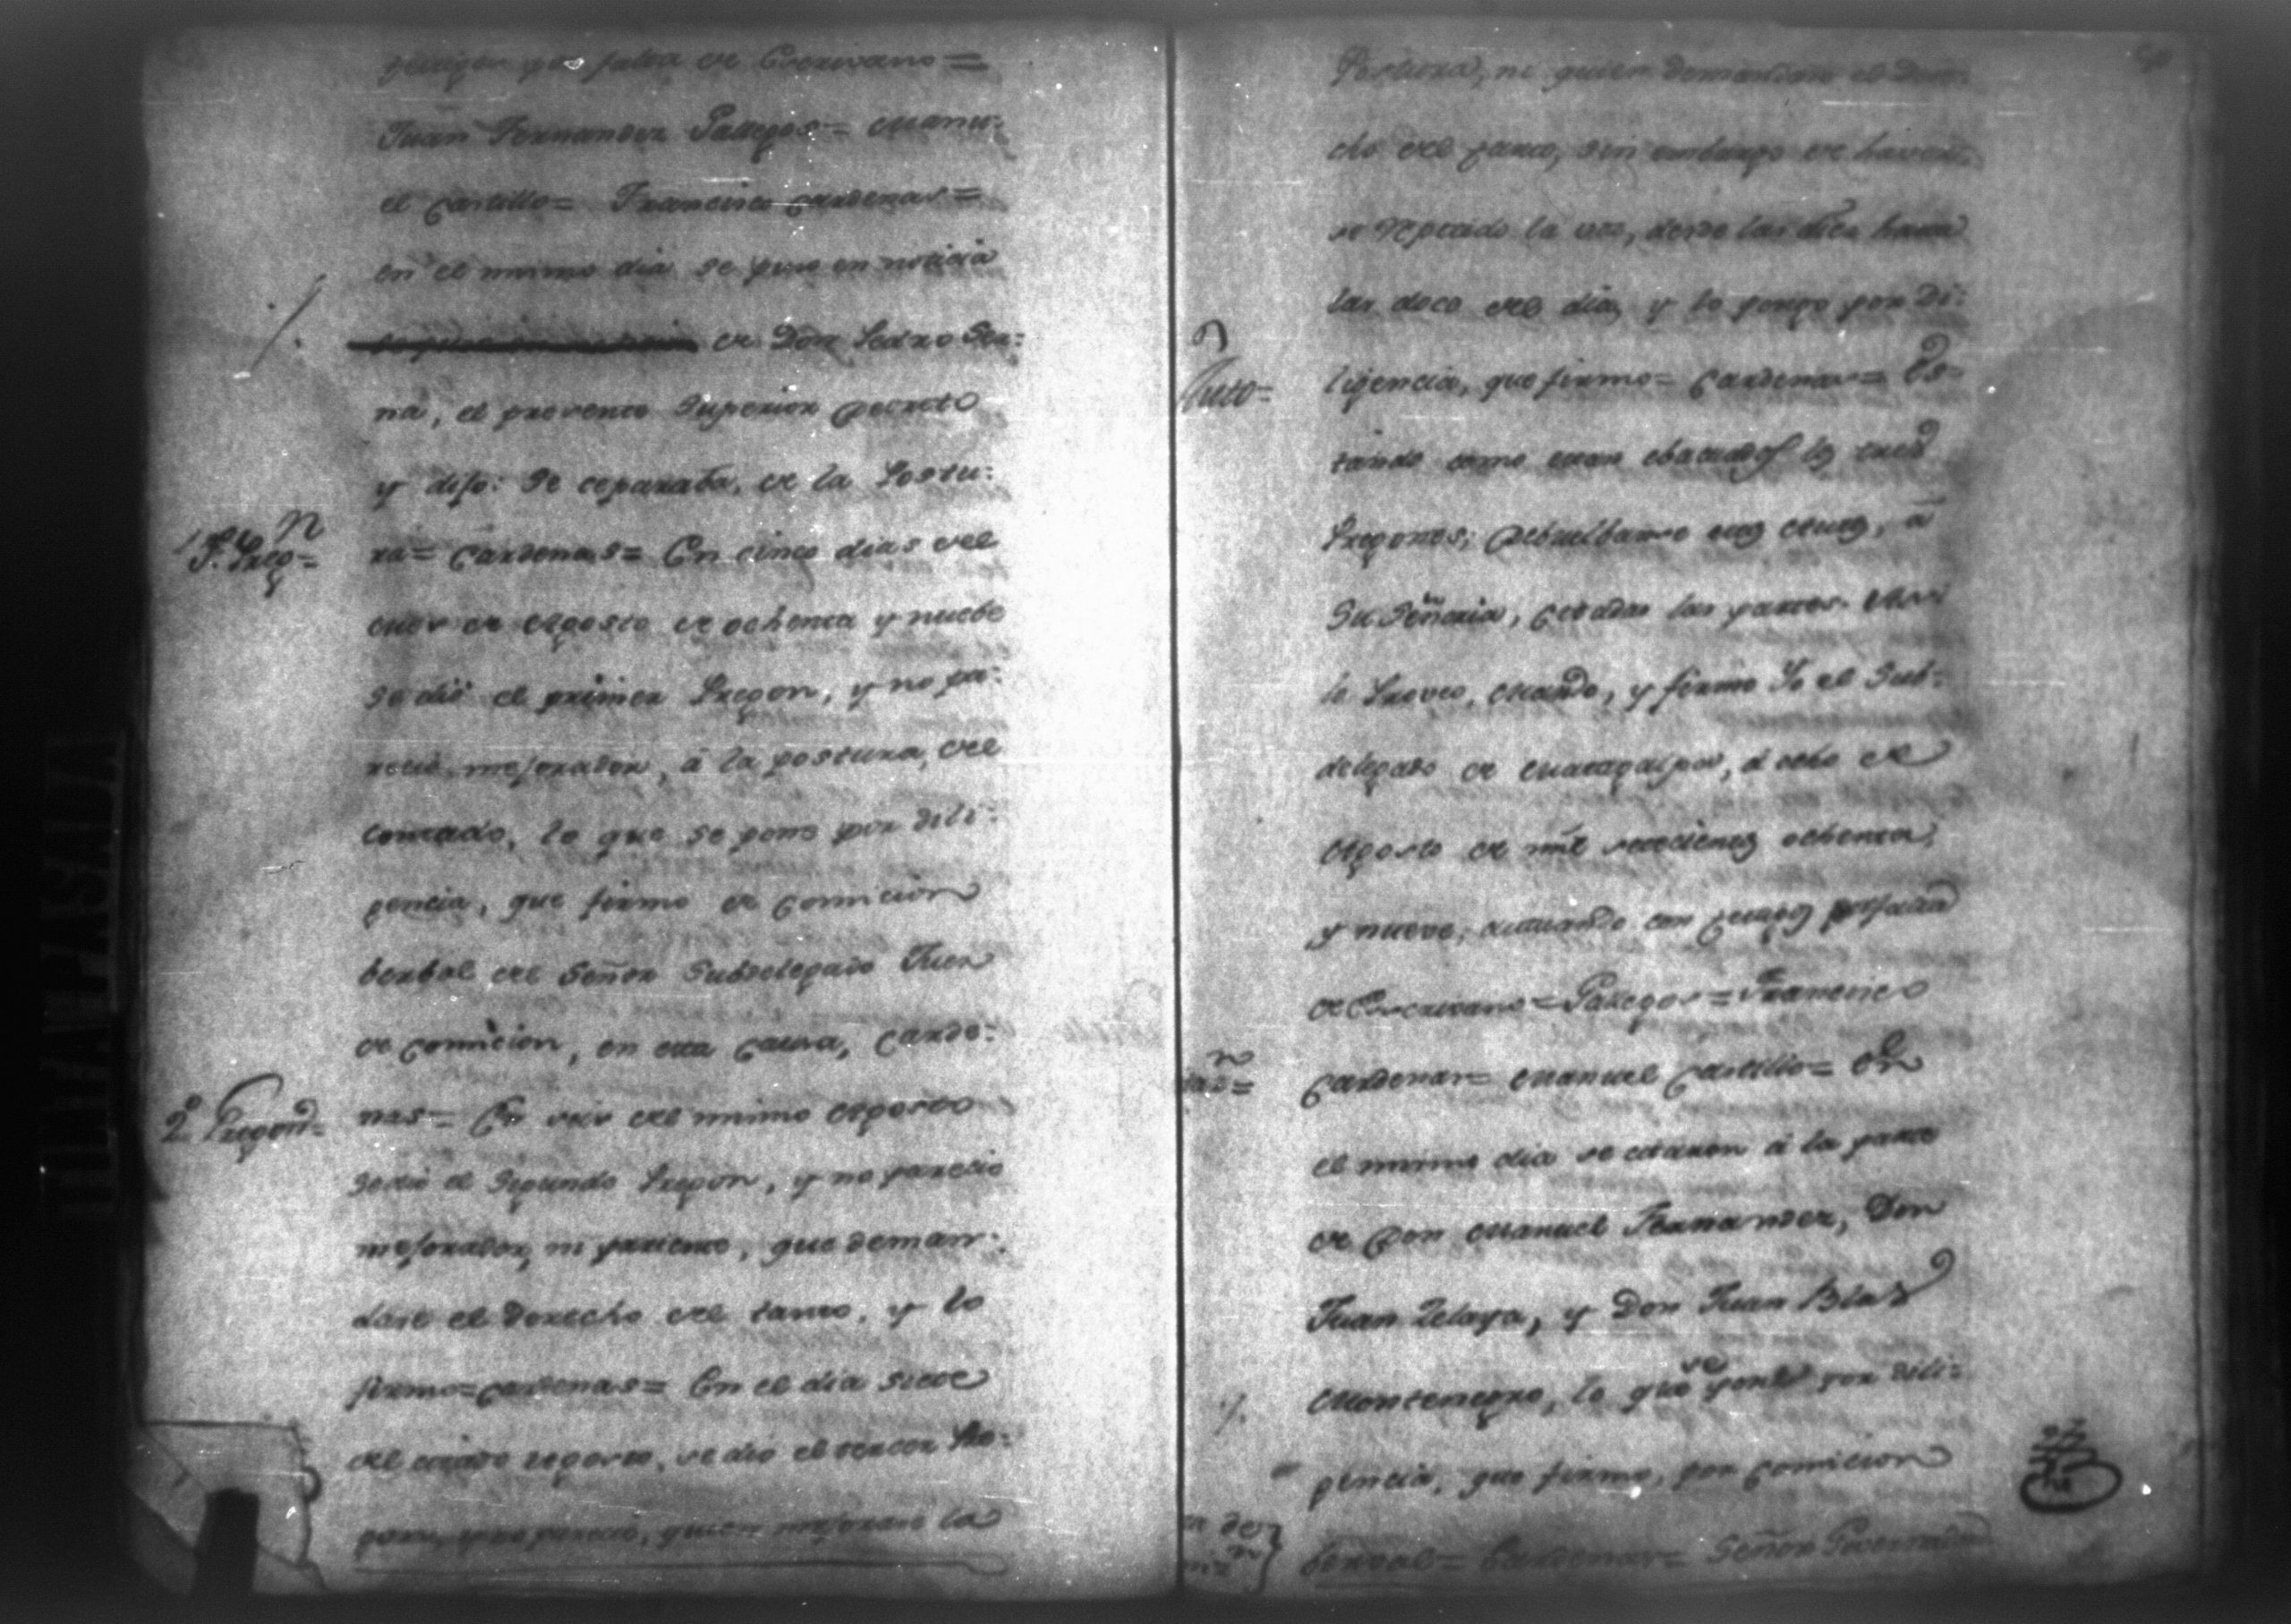 por falta de Escrivano=
Juan Fernandez Gallegos= Manu-
el Castillo= Francisco Cardenas=
en el mismo dia se puso en noticia
de Don Pedro Se
na, el precente Superior Decreto
y dijo: Se ceparaba, de la Postu-
1r. Preg.n= ra= Cardenas= En cinco dias del
mes de Agosto de ochenta y nuebe
se dió el primer Pregon, y no pa-
recio mejorador, á la postura, del
contado, lo que se pone por dili-
gencia, que firmo de Comicion
berbal del Señor Subdelegado Juez
de Comicion, en esta Causa, Carde-
2º Pregon= nas= En seis del mismo Agosto
se dio el Segundo Pregon, y no parecio
mejorador, ni pariente, que deman-
dase el Derecho del tanto, y lo
firmo= Cardenas= En el dia siete
del citado Agosto, se dio el tercer Pre-
gon, y no parecio, quien mejorase la
Postura, ni quien demandase el Dere-
cho del tanto, sin embargo de haver-
se repetido la voz, desde las diez hasta
las doce del dia, y lo pongo por Di-
Auto= ligencia, que firmo= Cardenas= Es-
tando como estan ebacuados los tres
Pregones; Debuelbanse estos autos, á
Su Señoria, Citadas las partes. Asi
lo Proveo, mando, y firmo Yo el Sub-
delegado de Matagalpa, á ocho de
Agosto de mil setecientos ochenta,
y nueve, actuando con testigos por falta
de Escrivano= Gallegos= Francisco
Cardenas= Manuel Castillo= En
el mismo dia se citaron á la parte
de Don Manuel Fernandez, Don
Juan Zelaya, y Don Juan Blas
Montenegro, lo que se pone por dili-
gencia, que firmo, por Comicion
berbal= Cardenas= Señor Governador